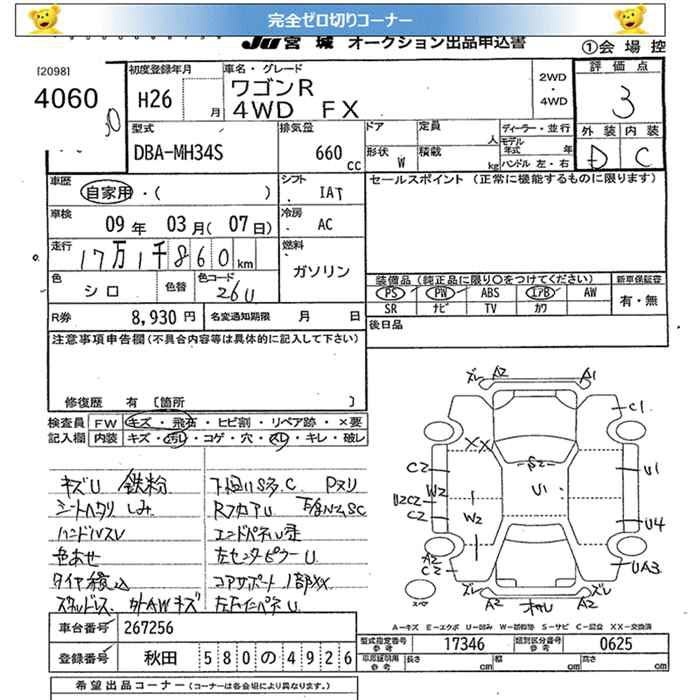 完全ゼロ切りコーナー
JU 宮城 オークション出品申込書
①会場控
[2098]
4060
初度登録年月
H26 月
車名・グレード
ワゴンR
4WD FX
2WD
・
4WD
評価点
3
外装 内装
D C
型式
DBA-MH34S
排気量
660 cc
ドア
形状 W
定員 人
積載 kg
ディーラー・並行
モデル年式 年
ハンドル 左・右
車歴
自家用・( )
シフト
IAT
セールスポイント (正常に機能するものに限ります)
車検
09年 03月(07日)
冷房
AC
走行
17万1千860km
燃料
ガソリン
色
シロ
色替
色コード
26U
装備品(純正品に限り○をつけてください)
新車保証書
PS PW ABS エアB AW
有・無
SR ナビ TV カワ
R券 8,930円
名変通知期限 月 日
後日品
注意事項申告欄(不具合内容等は具体的に記入して下さい)
修復歴 有〔箇所 〕
検査員 FW キズ・飛石・ヒビ割・リペア跡・×要
記入欄 内装 キズ・汚れ・コゲ・穴・スレ・キレ・破レ
キズU 鉄粉
シートヘタリ しみ
ハンドルスレ
色あせ
タイヤ積込
スタッドレス 外AWキズ
下廻りSネ.C Pヌリ
RフロアU
エンドパネル歪
左センターピラーU
コアサポート1部XX
左Fインナーパネル U
ズレ A2 A1
C1
XX
S2
C2
W2
U1
U1
U2C2
C2
W2
U4
A2
C2
UA3
ズレ A2 オサレ A2 ズレ
スペア
A−キズ E−エクボ U−凹み W−補修跡 S−サビ C−腐食 XX−交換済
車台番号 267256
型式指定番号 参考 17346
類別区分番号 参考 0625
登録番号 秋田 580 の 4926
車庫証明用 参考 長さ cm 幅 cm 高さ cm
希望出品コーナー(コーナーは各会場により異なります)